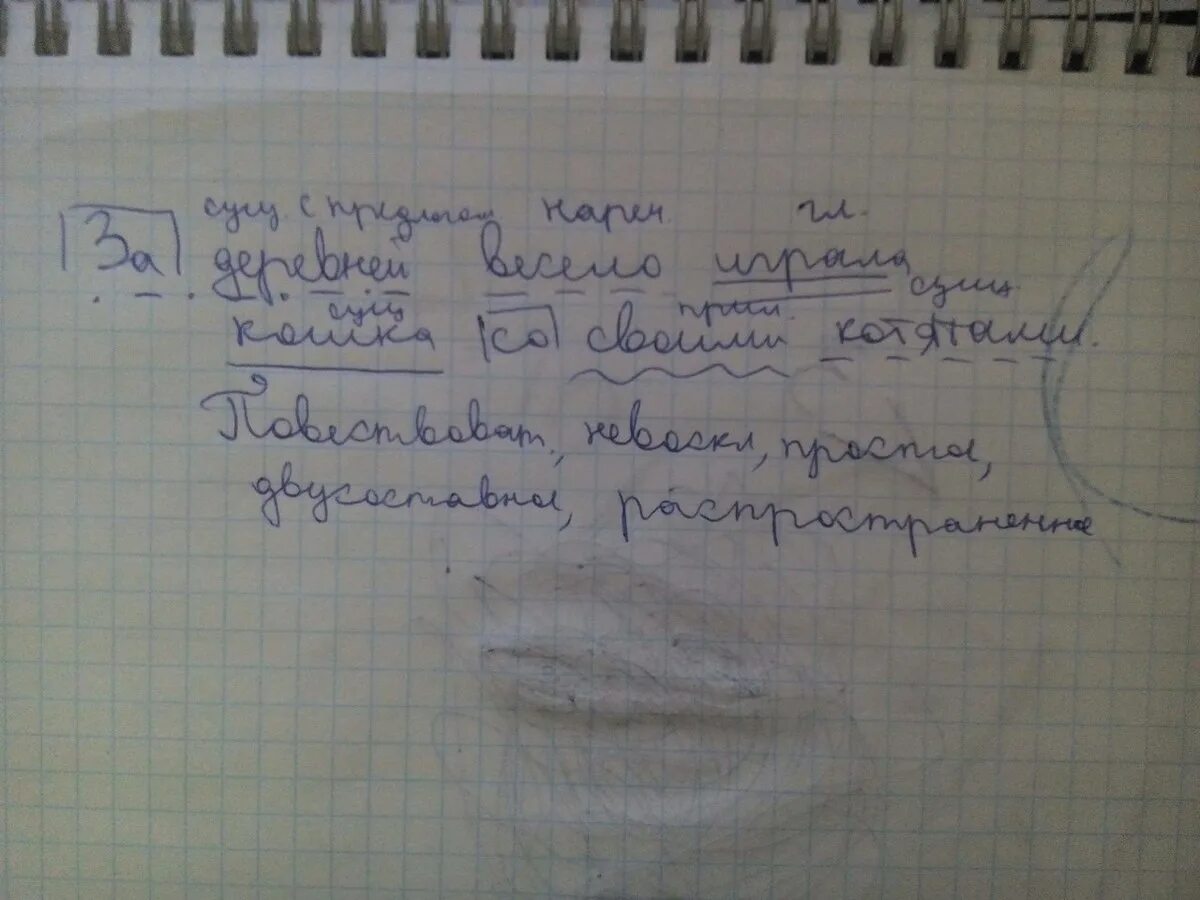 сущ. с предлогом нареч. гл.
За деревней весело играла
сущ прил. сущ.
кошка со своими котятами.
Повествоват., невоскл, простое,
двусоставное, распространенное